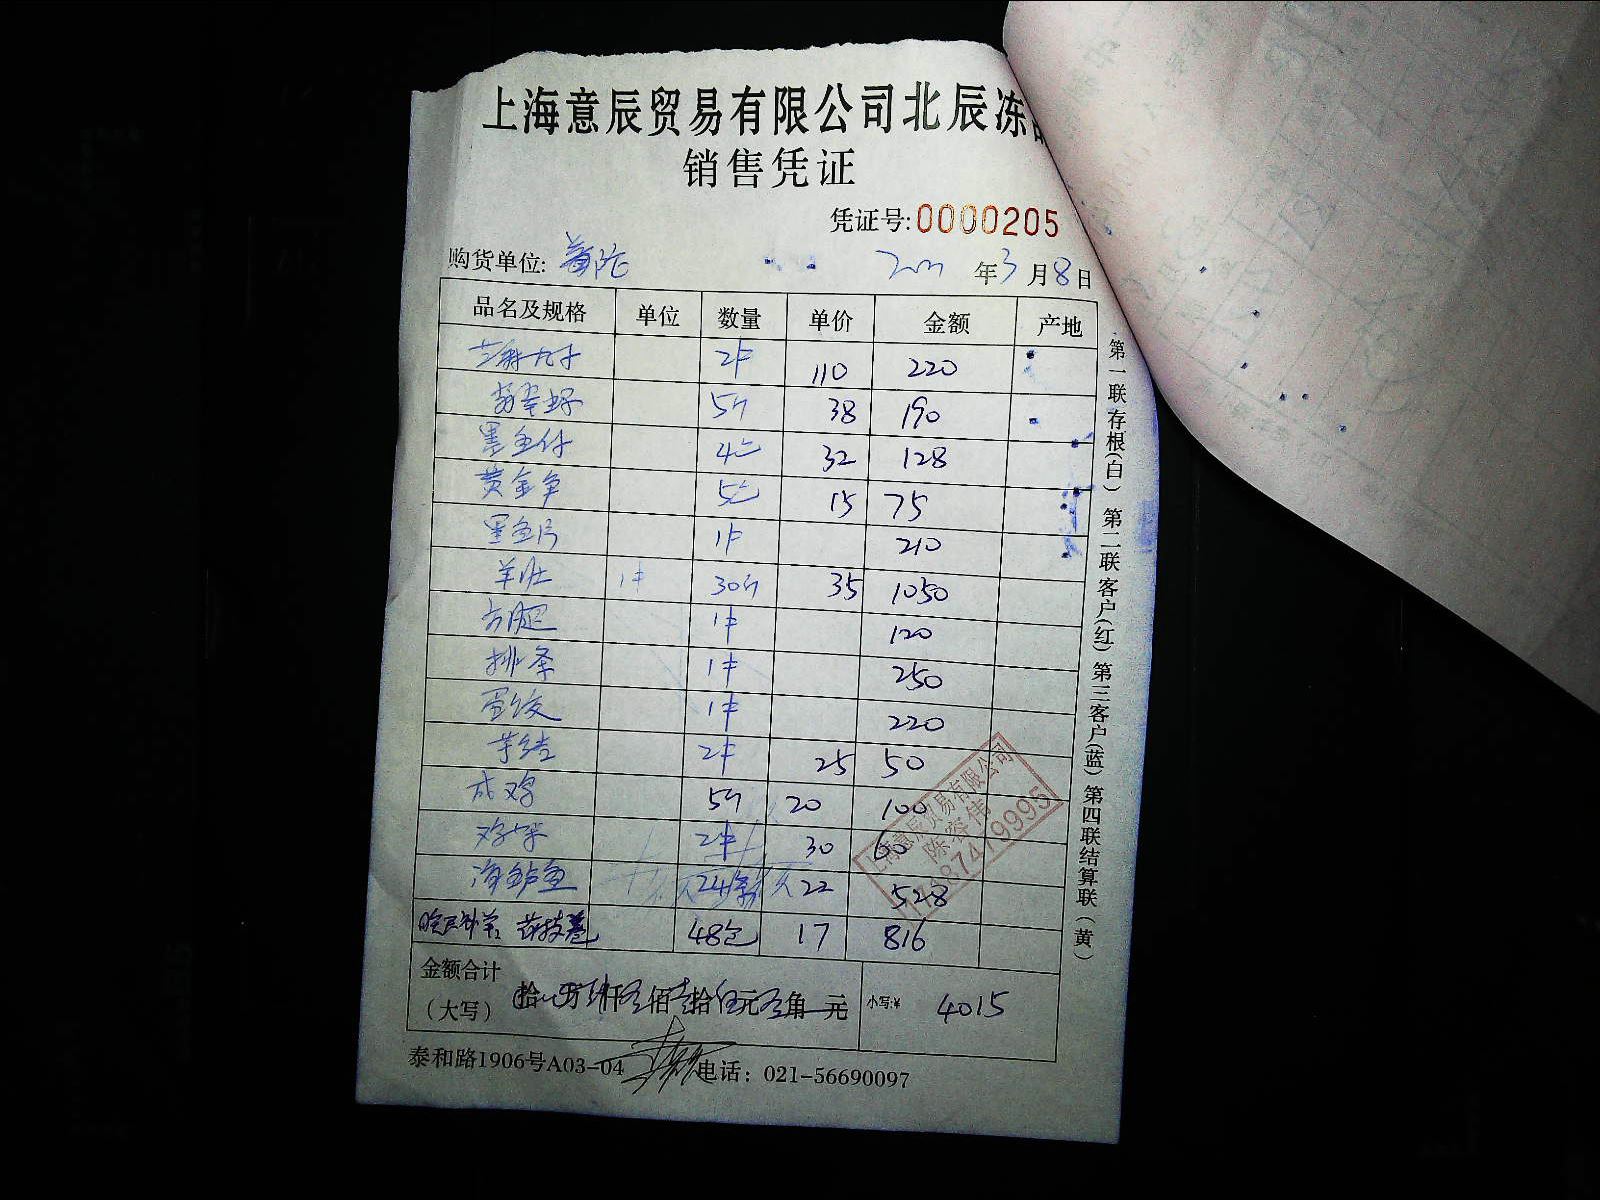 上海意辰贸易有限公司北辰冻
销售凭证
凭证号:0000205
购货单位: 普陀 年3月8日
品名及规格 单位 数量 单价 金额 产地
2件 110 220
5斤 38 190
墨鱼仔 4包 32 128
黄金 5包 15 75
墨鱼片 1件 210
羊肚 1件 30斤 35 1050
方腿 1件 120
排条 1件 250
蛋饺 1件 220
2件 25 50
成鸡 5斤 20 100
2件 30 60
海鲈鱼 24条 22 528
48包 17 816
金额合计
(大写) 拾 万 仟 佰 拾 元 角 元 小写:¥ 4015
泰和路1906号A03-04 电话: 021-56690097
第一联存根(白) 第二联客户(红) 第三客户(蓝) 第四联结算联(黄)
上海意辰贸易有限公司